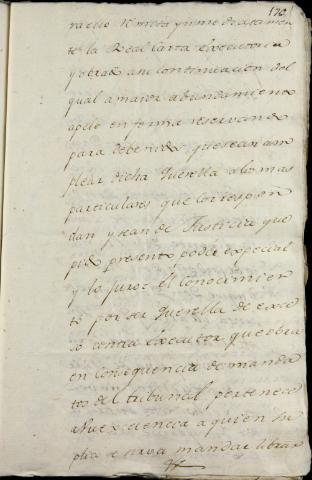 170
te la Real Carta Executoria
y obrado a su continuacion del
qual a maior abundamiento
apelo en forma reservando
para deber
plear dicha Querella a lo mas
particulares que correspon
dan y sean de Justicia que
pido presento poder especial
y lo Juro: el conocimien
to por ser Querella de exce
so contra executor que obra
en consequencia de manda
tos del tribunal pertenece
a Vuexcelencia a quien su
plica se sirva mandar librar